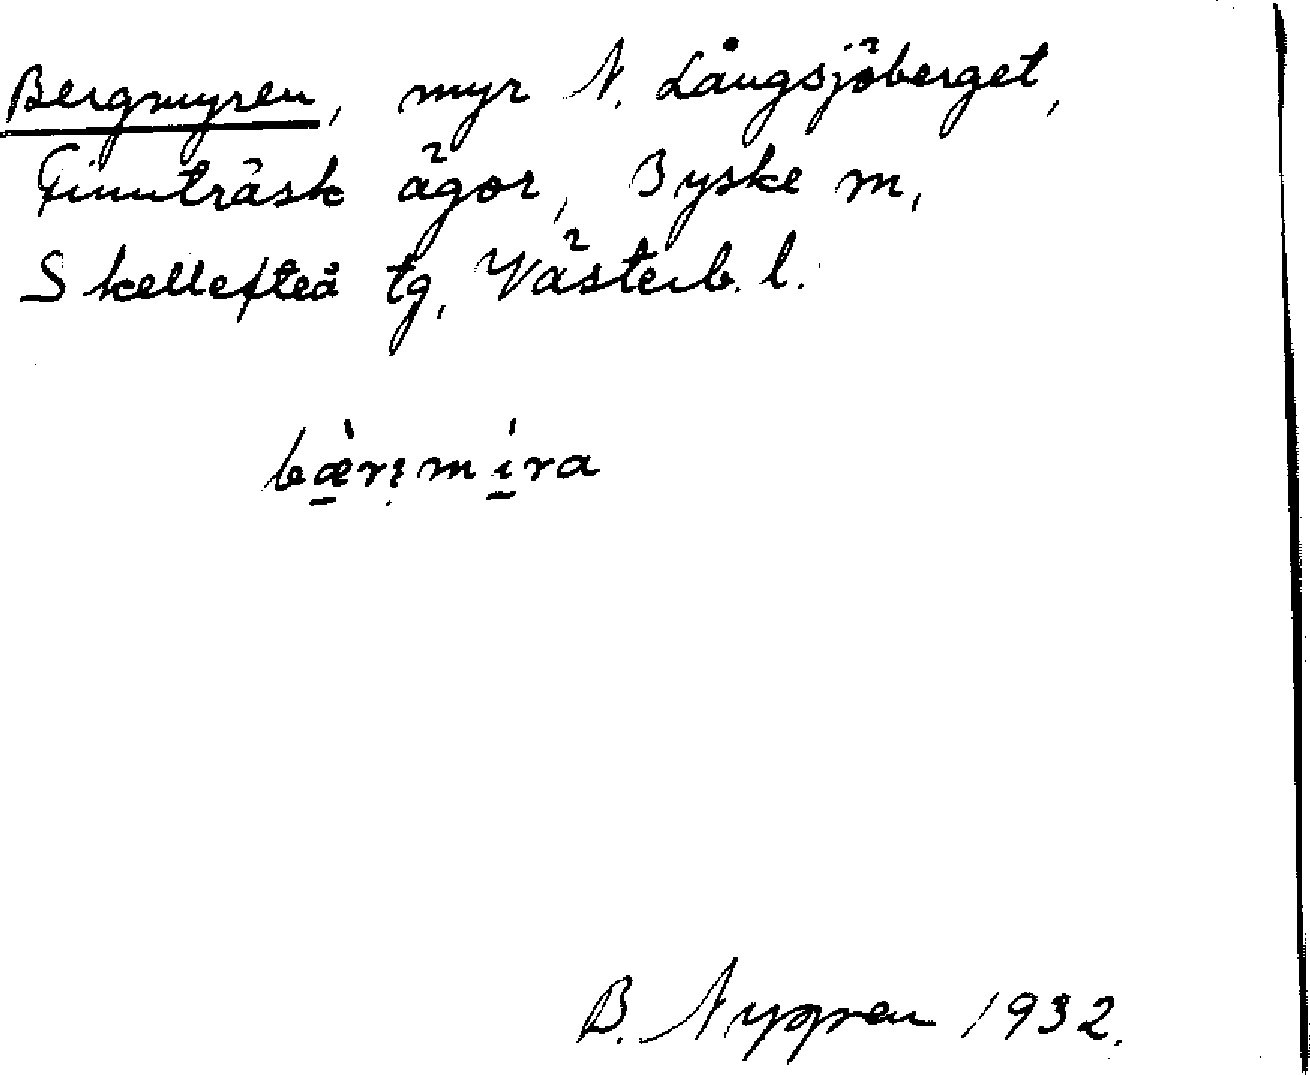 Bergmyren, myr N. Långsjöberget,
Finnträsk ägor, Byske m,
Skellefteå tg, Västerb. l.
B. Nygren 1932.